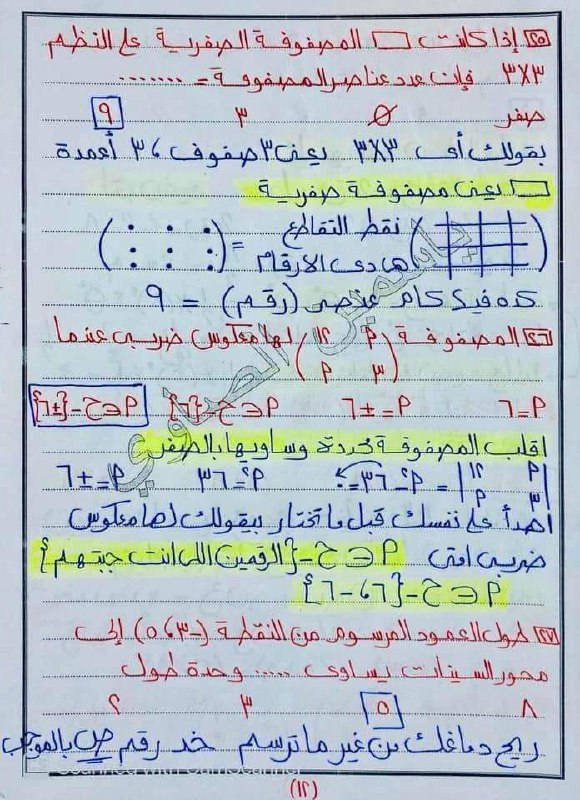 ٢٥ إذا كانت □ المصفوفة الصفرية على النظم
٣×٣ فإن عدد عناصر المصفوفة = ........
صفر ∅ ٣ ٩
بقولك أى ٣×٣ يعنى ٣ صفوف ، ٣ أعمدة
□ يعنى مصفوفة صفرية
نقط التقاطع
هى دى الأرقام =
كده فيه كام عنصر (رقم) = ٩
٢٦ المصفوفة (٢ ١٢ ٣ ٢) لها معكوس ضربى عندما
٢ = ٦ ٢ = ±٦ ٢ ∈ ح - {٦} ٢ ∈ ح - {±٦}
اقلب المصفوفة محددة وساويها بالصفر
|٢ ١٢ ٣ ٢| = ٢² - ٣٦ = ٠ ٢² = ٣٦ ٢ = ±٦
اهدأ على نفسك قبل ما تختار بيقولك لها معكوس
ضربى امتى ٢ ∈ ح - {الرقمين اللى انت جبتهم}
٢ ∈ ح - {٦ ، -٦}
٢٧ طول العمود المرسوم من النقطة (-٣ ، ٥) إلى
محور السينات يساوى ..... وحدة طول
٨ ٣ ٥ ٢
ريح دماغك من غير ما ترسم خد رقم ص بالموجب
ياسمين الصاوي
Scanned with CamScanner
(١٢)